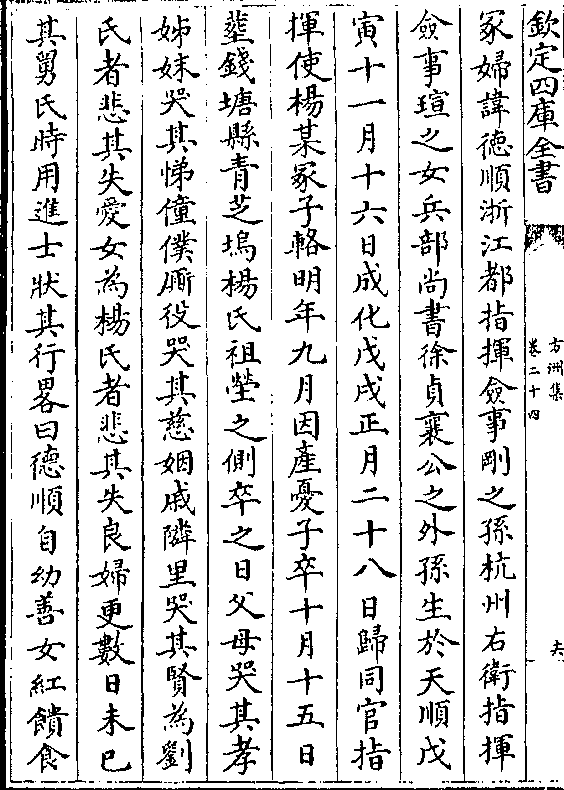 欽定四庫全書
方洲集
卷二十四
冢婦諱德順浙江都指揮僉事剛之孫杭州右衛指揮
僉事瑄之女兵部尚書徐貞襄公之外孫生於天順戊
寅十一月十六日成化戊戌正月二十八日歸同官指
揮使楊某冢子輅明年九月因產憂子卒十月十五日
塟錢塘縣青芝塢楊氏祖塋之側卒之日父母哭其孝
姊妹哭其悌僮僕厮役哭其慈姻戚隣里哭其賢為劉
氏者悲其失愛女為楊氏者悲其失良婦更數日未已
其舅氏時用進士狀其行畧曰德順自幼善女紅饋食